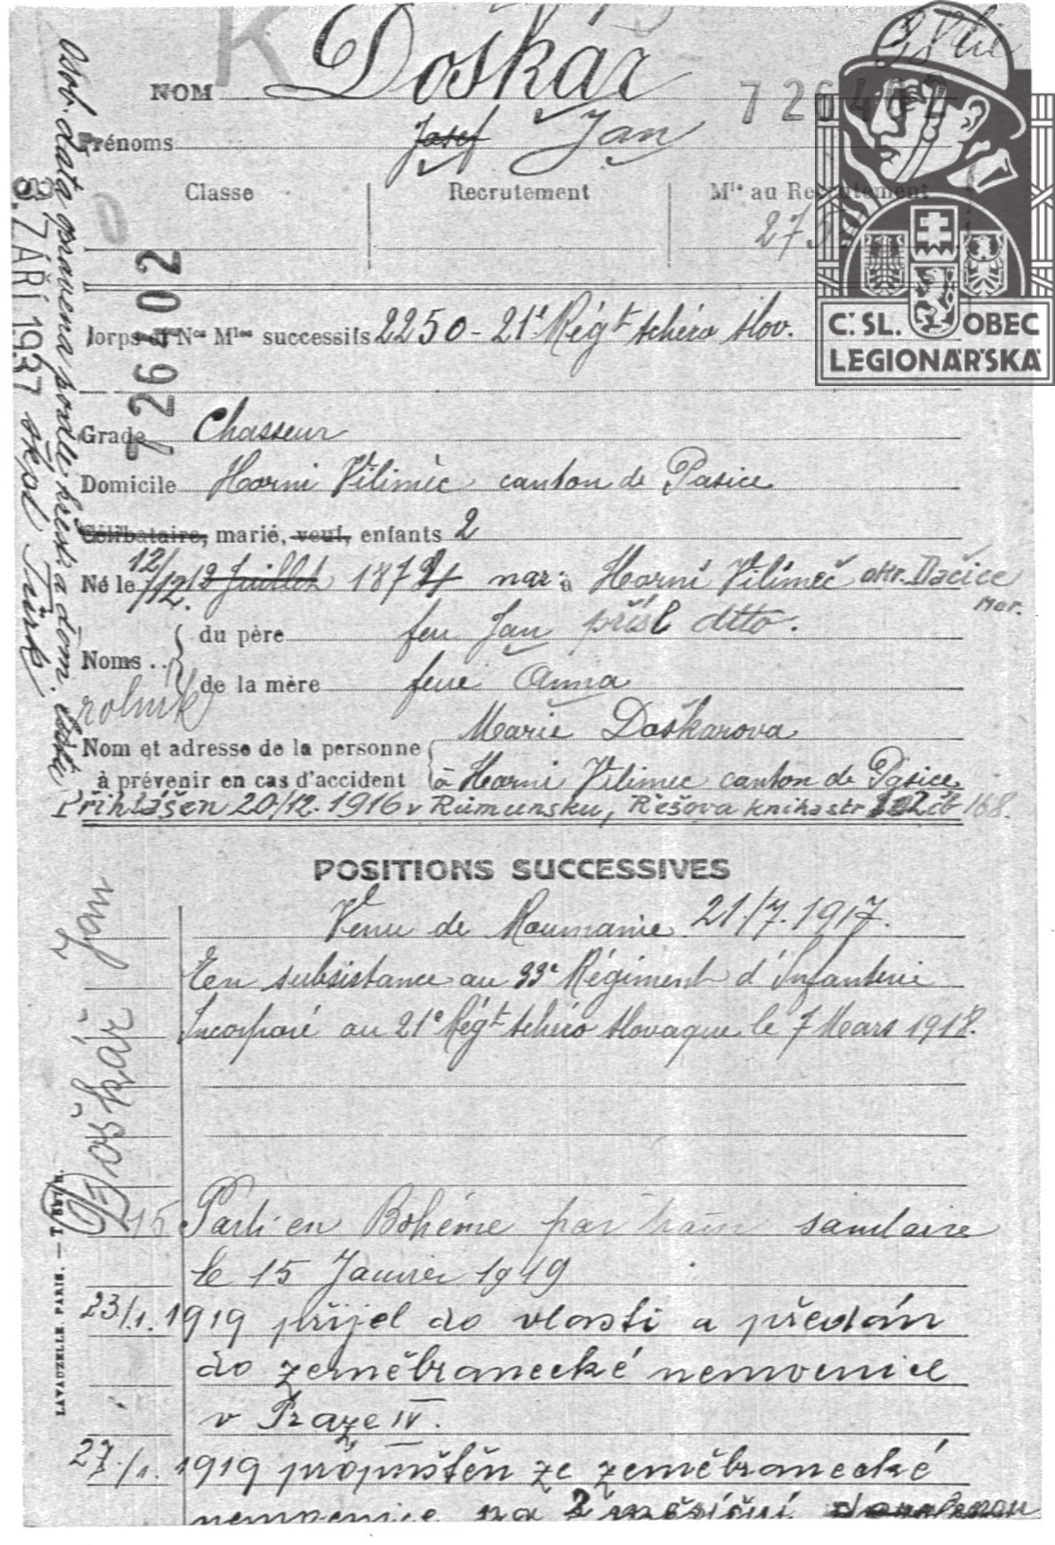 K
NOM Doškář
726402
Prénoms Josef Jan
Classe Recrutement Mle au Recrutement
27
Corps et Nos Mles successifs 2250 - 21e Régt tchéco slov.
C: SL. OBEC
LEGIONÁŘSKÁ
726402
Grade Chasseur
Domicile Horni Vilimèc canton de Pasice
Célibataire, marié, veuf, enfants 2
Né le 12/12. 12 Juillet 1874 nar: à Horní Vilímeč okr. Dačice
Mor.
Noms .. du père feu Jan přísl dtto.
de la mère feue Anna
rolník
Nom et adresse de la personne Marie Doškarova
à prévenir en cas d'accident à Horni Vilimec canton de Pasice.
Přihlášen 20/12. 1916 v Rumunsku, Řešova kniha str 102 čís 168.
Osob. data opravena podle křest. a dom. listu
8. ZÁŘÍ 1937
POSITIONS SUCCESSIVES
Venu de Roumanie 21/7. 1917.
En subsistance au 33e Régiment d'Infanterie
Incorporé au 21e Régt tchéco slovaque le 7 Mars 1918.
Doškář Jan
Parti en Bohême par train sanitaire
le 15 Janvier 1919
23/1. 1919 přijel do vlasti a předán
do zeměbranecké nemocnice
v Praze IV.
27./1. 1919 propuštěn ze zeměbranecké
nemocnice na 2 měsíční dovolenou
LAVAUZELLE PARIS.